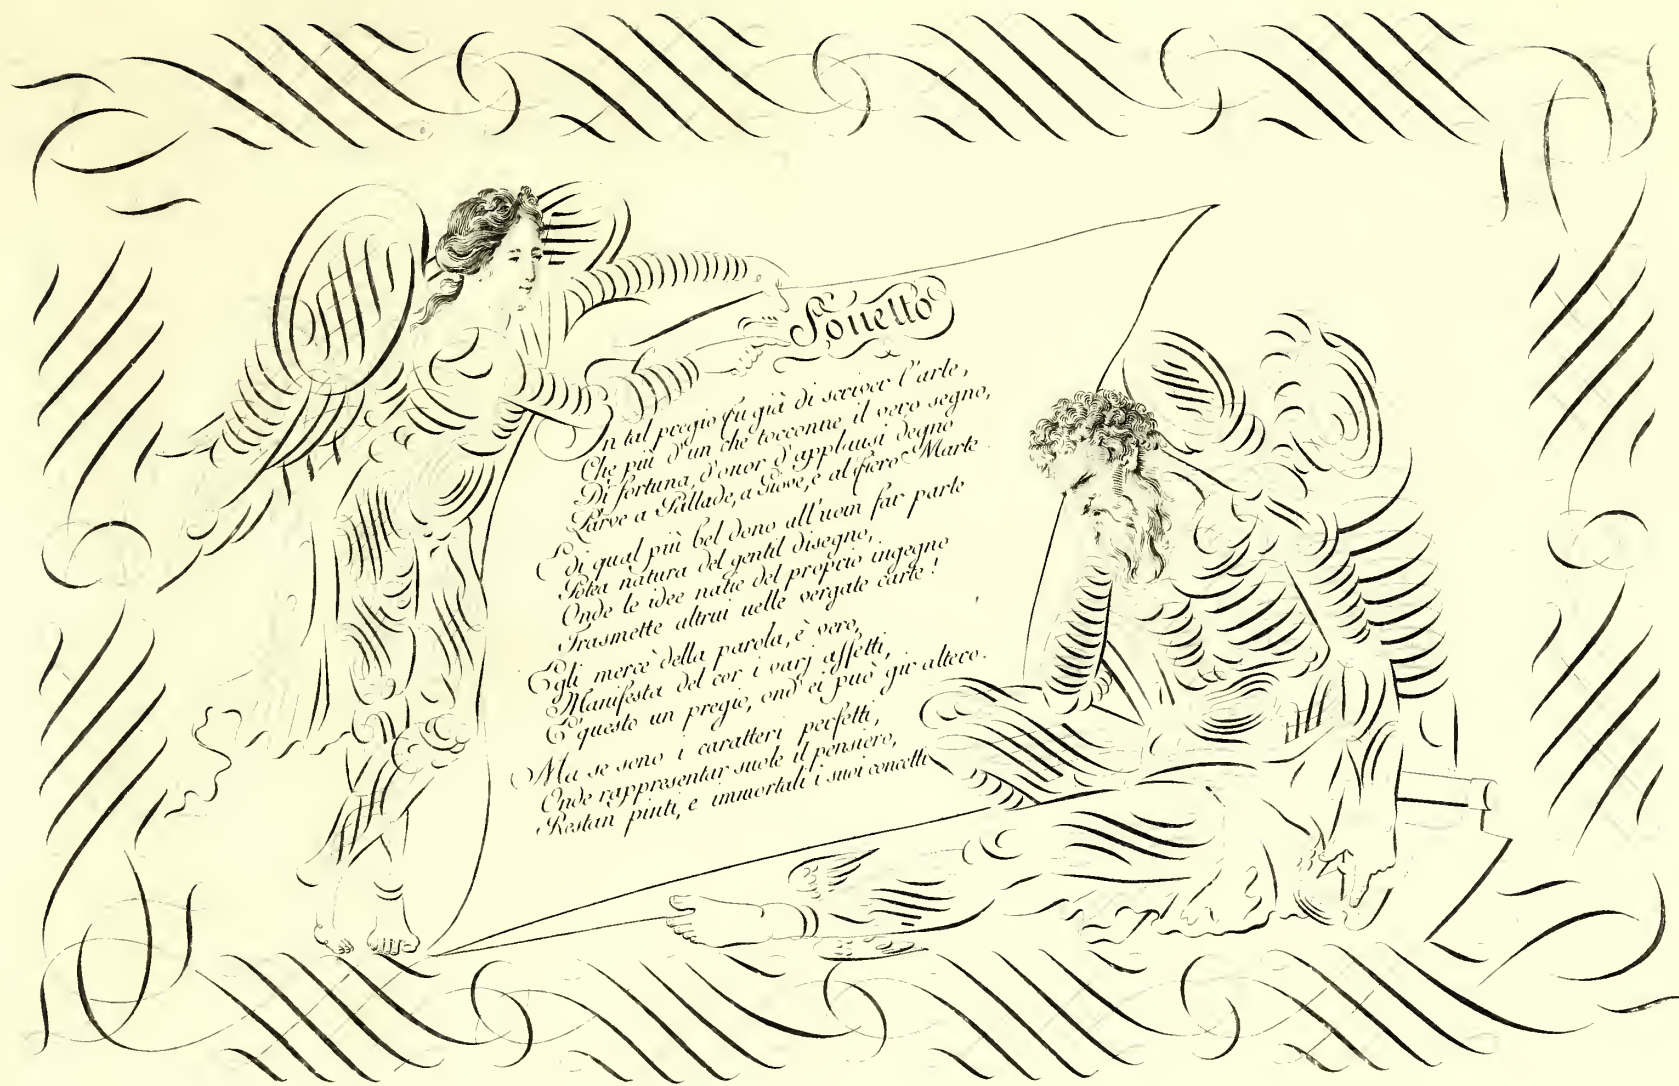 Sonetto
In tal pregio fu già di scriver l'arte,
Che più d'un che tocconne il vero segno,
Di fortuna, d'onor d'applausi degno
Parve a Pallade, a Giove, e al fiero Marte.
E di qual più bel dono all'uom far parte
Potea natura del gentil disegno,
Onde le idee natie del proprio ingegno
Trasmette altrui nelle vergate carte!
Egli mercè della parola, è vero,
Manifesta del cor i varj affetti,
E questo un pregio, ond' ei può gir altero.
Ma se sono i caratteri perfetti,
Onde rappresentar suole il pensiero,
Restan pinti, e immortali i suoi concetti